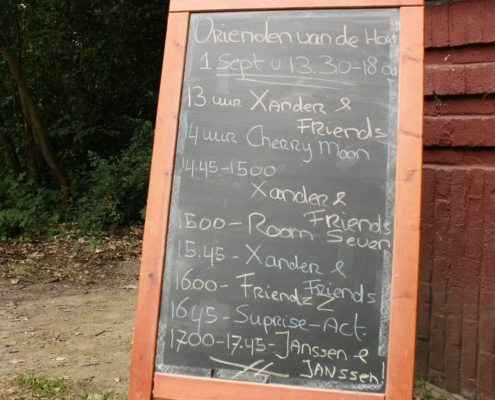 Vrienden van de Hout
1 Sept v 13.30-18.00
13 uur Xander &
Friends
14 uur Cherry Moon
14.45-1500
Xander &
Friends
1500 - Room Seven
15.45 - Xander &
Friends
1600 - FriendzZ
1645 - Suprise-Act
1700-17.45 - Janssen &
Janssen!